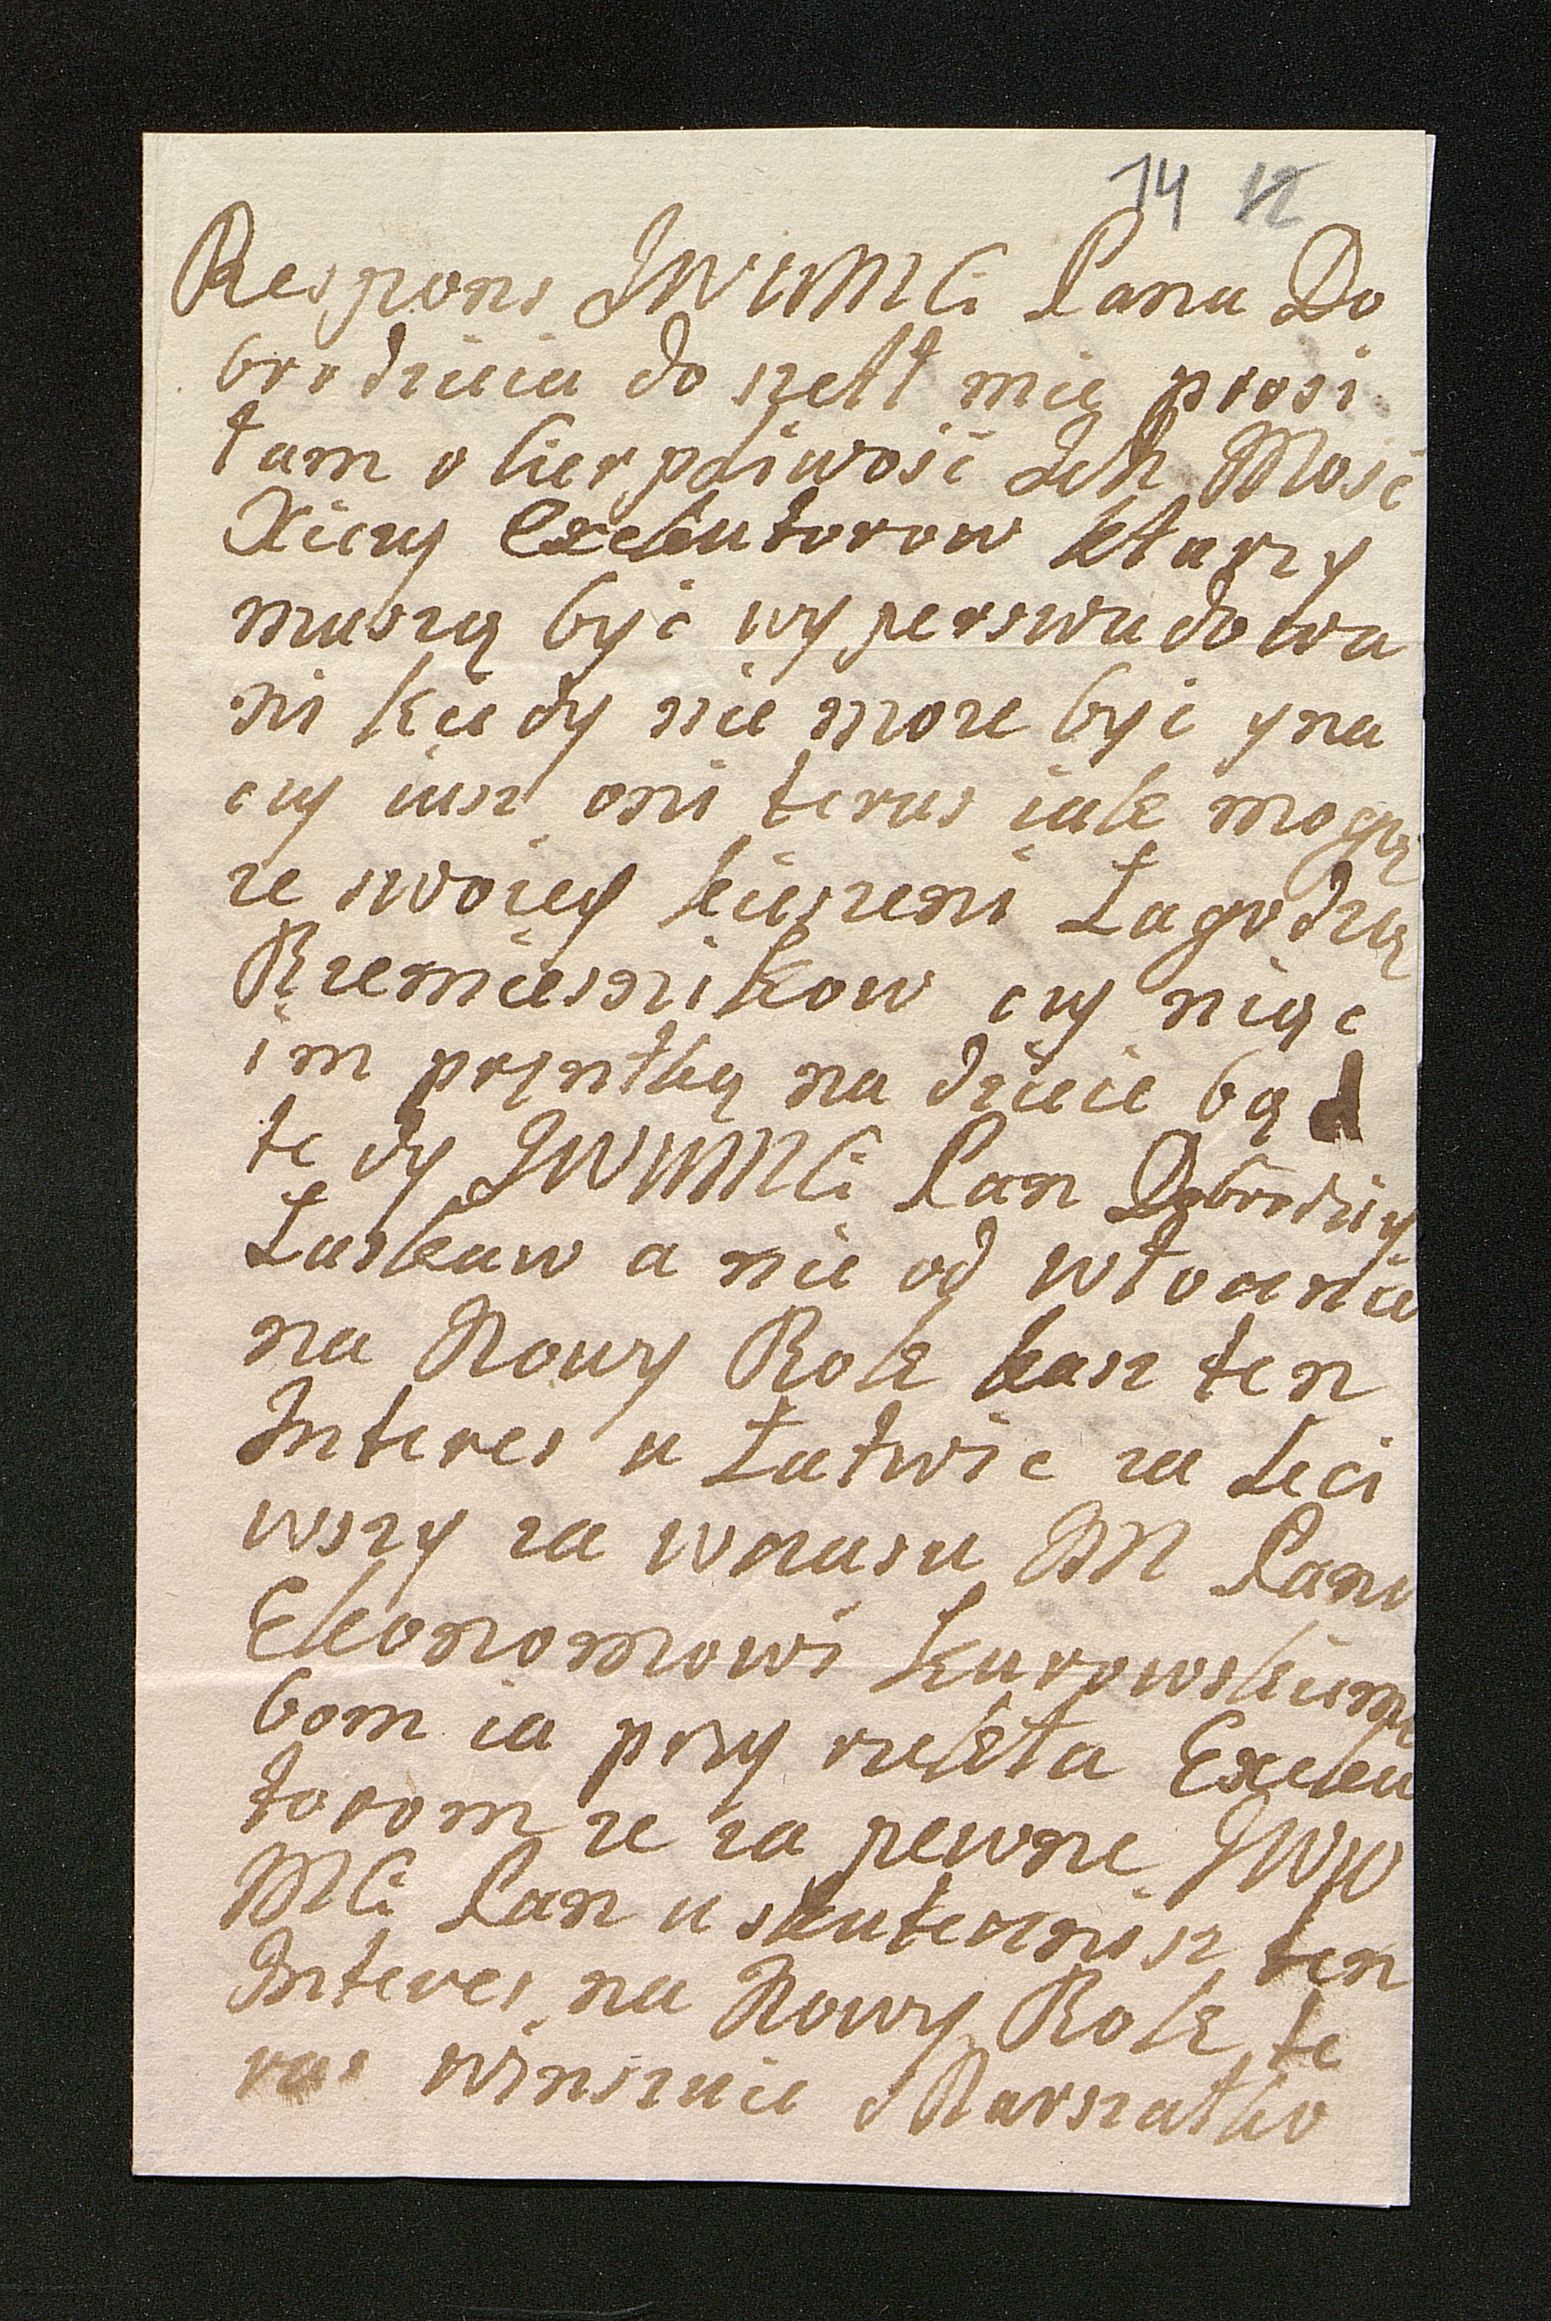 14 12
Respons JWWMCi Pana Do
brodzieia do szetł mię prosi
łam o Cierpliwość Ich Mość
Xiczy Exekutorow ktorzy
muszą być wy perswadowa
ni kiedy nie moze być yna
czy iusz oni teras iak mogą
ze swoiey kieszeni Łagodzą
Rzemiesnikow czy niąc
im prętką na dzieie bąd
te dy JWWMCi Pan Dobrodziey
Łaskaw a nie od włocznie
na Nowy Rok kasz ten
Interes u Łatwic za Leci
wszy za wczasu JM Panu
Ekonomowi Kurowskiemu
bom ia przy rzekła Exeku
torom ze za pewne JWW
MCi Pan u skutecznisz ten
Interes na Nowy Rok te
ras winszuie Marszałko